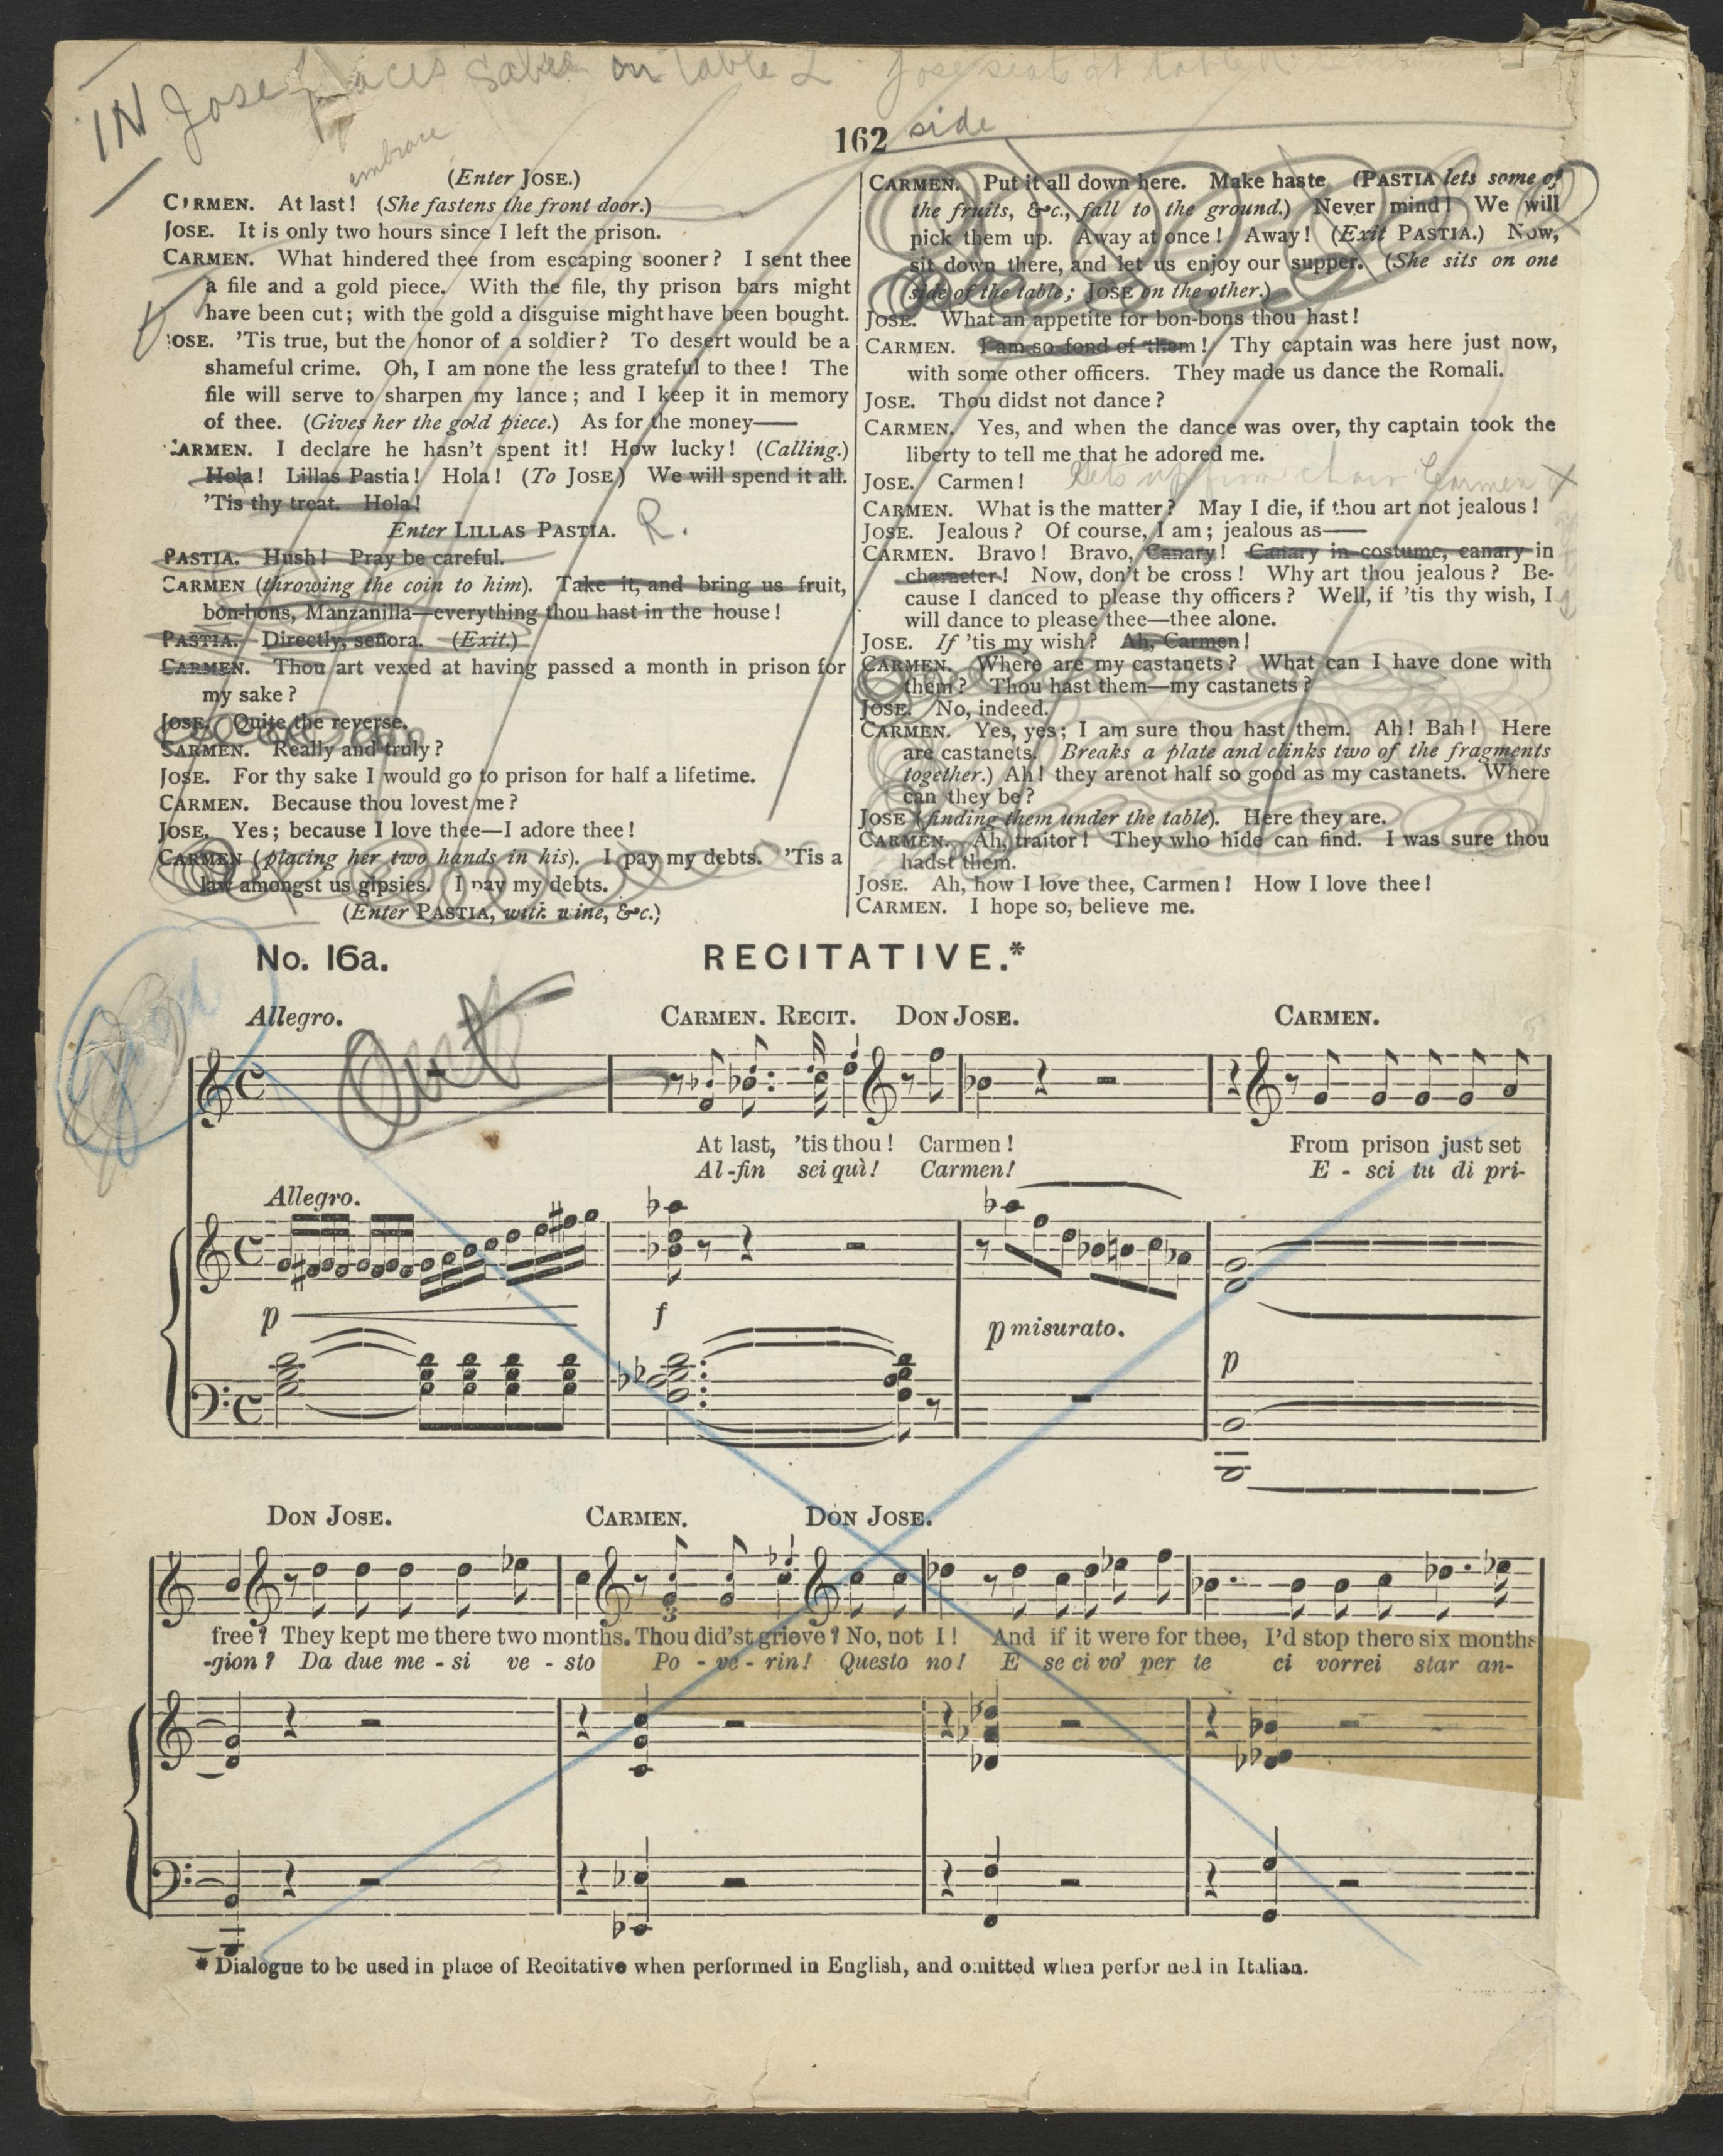 IN Jose places Saber on table L Jose seats at table
side
162
embrace
(Enter JOSE.)
CARMEN. At last! (She fastens the front door.)
JOSE. It is only two hours since I left the prison.
CARMEN. What hindered thee from escaping sooner? I sent thee
a file and a gold piece. With the file, thy prison bars might
have been cut; with the gold a disguise might have been bought.
JOSE. 'Tis true, but the honor of a soldier? To desert would be a
shameful crime. Oh, I am none the less grateful to thee! The
file will serve to sharpen my lance; and I keep it in memory
of thee. (Gives her the gold piece.) As for the money——
CARMEN. I declare he hasn't spent it! How lucky! (Calling.)
Hola! Lillas Pastia! Hola! (To JOSE) We will spend it all.
'Tis thy treat. Hola!
Enter LILLAS PASTIA. R.
PASTIA. Hush! Pray be careful.
CARMEN (throwing the coin to him). Take it, and bring us fruit,
bon-bons, Manzanilla—everything thou hast in the house!
PASTIA. Directly, señora. (Exit.)
CARMEN. Thou art vexed at having passed a month in prison for
my sake?
JOSE. Quite the reverse.
CARMEN. Really and truly?
JOSE. For thy sake I would go to prison for half a lifetime.
CARMEN. Because thou lovest me?
JOSE. Yes; because I love thee—I adore thee!
CARMEN (placing her two hands in his). I pay my debts. 'Tis a
law amongst us gipsies. I pay my debts.
(Enter PASTIA, with wine, &c.)
CARMEN. Put it all down here. Make haste (PASTIA lets some of
the fruits, &c., fall to the ground.) Never mind! We will
pick them up. Away at once! Away! (Exit PASTIA.) Now,
sit down there, and let us enjoy our supper. (She sits on one
side of the table; JOSE on the other.)
JOSE. What an appetite for bon-bons thou hast!
CARMEN. I am so fond of them! Thy captain was here just now,
with some other officers. They made us dance the Romali.
JOSE. Thou didst not dance?
CARMEN. Yes, and when the dance was over, thy captain took the
liberty to tell me that he adored me.
JOSE. Carmen! Gets up from chair Carmen X
CARMEN. What is the matter? May I die, if thou art not jealous!
JOSE. Jealous? Of course, I am; jealous as——
CARMEN. Bravo! Bravo, Canary! Canary in costume, canary in
character! Now, don't be cross! Why art thou jealous? Be-
cause I danced to please thy officers? Well, if 'tis thy wish, I
will dance to please thee—thee alone.
JOSE. If 'tis my wish? Ah, Carmen!
CARMEN. Where are my castanets? What can I have done with
them? Thou hast them—my castanets?
JOSE. No, indeed.
CARMEN. Yes, yes; I am sure thou hast them. Ah! Bah! Here
are castanets. Breaks a plate and clinks two of the fragments
together.) Ah! they arenot half so good as my castanets. Where
can they be?
JOSE (finding them under the table). Here they are.
CARMEN. Ah, traitor! They who hide can find. I was sure thou
hadst them.
JOSE. Ah, how I love thee, Carmen! How I love thee!
CARMEN. I hope so, believe me.
No. 16a. RECITATIVE.*
Out
Allegro. CARMEN. RECIT. DON JOSE. CARMEN.
At last, 'tis thou! Carmen! From prison just set
Al-fin sei quì! Carmen! E - sci tu di pri-
Allegro.
p f p misurato. p
DON JOSE. CARMEN. DON JOSE.
3
free? They kept me there two months. Thou did'st grieve? No, not I! And if it were for thee, I'd stop there six months
-gion? Da due me - si ve - sto Po - ve - rin! Questo no! E se ci vo' per te ci vorrei star an-
* Dialogue to be used in place of Recitative when performed in English, and omitted when performed in Italian.